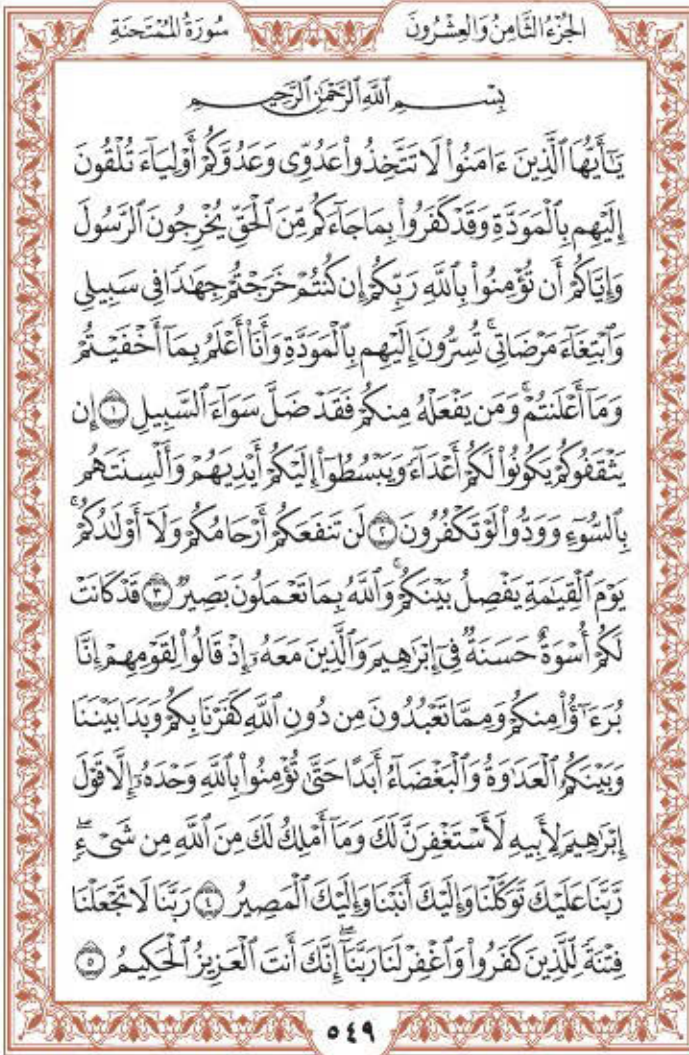 الجُزْءُ الثَّامِنُ وَالعِشْرُونَ
سُورَةُ المُمْتَحنَةِ
بِسْمِ ٱللَّهِ ٱلرَّحْمَٰنِ ٱلرَّحِيمِ
يَٰٓأَيُّهَا ٱلَّذِينَ ءَامَنُوا۟ لَا تَتَّخِذُوا۟ عَدُوِّى وَعَدُوَّكُمْ أَوْلِيَآءَ تُلْقُونَ
إِلَيْهِم بِٱلْمَوَدَّةِ وَقَدْ كَفَرُوا۟ بِمَا جَآءَكُم مِّنَ ٱلْحَقِّ يُخْرِجُونَ ٱلرَّسُولَ
وَإِيَّاكُمْ أَن تُؤْمِنُوا۟ بِٱللَّهِ رَبِّكُمْ إِن كُنتُمْ خَرَجْتُمْ جِهَٰدًا فِى سَبِيلِى
وَٱبْتِغَآءَ مَرْضَاتِى ۚ تُسِرُّونَ إِلَيْهِم بِٱلْمَوَدَّةِ وَأَنَا۠ أَعْلَمُ بِمَآ أَخْفَيْتُمْ
وَمَآ أَعْلَنتُمْ ۚ وَمَن يَفْعَلْهُ مِنكُمْ فَقَدْ ضَلَّ سَوَآءَ ٱلسَّبِيلِ ۝١ إِن
يَثْقَفُوكُمْ يَكُونُوا۟ لَكُمْ أَعْدَآءً وَيَبْسُطُوٓا۟ إِلَيْكُمْ أَيْدِيَهُمْ وَأَلْسِنَتَهُم
بِٱلسُّوٓءِ وَوَدُّوا۟ لَوْ تَكْفُرُونَ ۝٢ لَن تَنفَعَكُمْ أَرْحَامُكُمْ وَلَآ أَوْلَٰدُكُمْ ۚ
يَوْمَ ٱلْقِيَٰمَةِ يَفْصِلُ بَيْنَكُمْ ۚ وَٱللَّهُ بِمَا تَعْمَلُونَ بَصِيرٌ ۝٣ قَدْ كَانَتْ
لَكُمْ أُسْوَةٌ حَسَنَةٌ فِىٓ إِبْرَٰهِيمَ وَٱلَّذِينَ مَعَهُۥٓ إِذْ قَالُوا۟ لِقَوْمِهِمْ إِنَّا
بُرَءَٰٓؤُا۟ مِنكُمْ وَمِمَّا تَعْبُدُونَ مِن دُونِ ٱللَّهِ كَفَرْنَا بِكُمْ وَبَدَا بَيْنَنَا
وَبَيْنَكُمُ ٱلْعَدَٰوَةُ وَٱلْبَغْضَآءُ أَبَدًا حَتَّىٰ تُؤْمِنُوا۟ بِٱللَّهِ وَحْدَهُۥٓ إِلَّا قَوْلَ
إِبْرَٰهِيمَ لِأَبِيهِ لَأَسْتَغْفِرَنَّ لَكَ وَمَآ أَمْلِكُ لَكَ مِنَ ٱللَّهِ مِن شَىْءٍ ۖ
رَّبَّنَا عَلَيْكَ تَوَكَّلْنَا وَإِلَيْكَ أَنَبْنَا وَإِلَيْكَ ٱلْمَصِيرُ ۝٤ رَبَّنَا لَا تَجْعَلْنَا
فِتْنَةً لِّلَّذِينَ كَفَرُوا۟ وَٱغْفِرْ لَنَا رَبَّنَآ ۖ إِنَّكَ أَنتَ ٱلْعَزِيزُ ٱلْحَكِيمُ ۝٥
٥٤٩